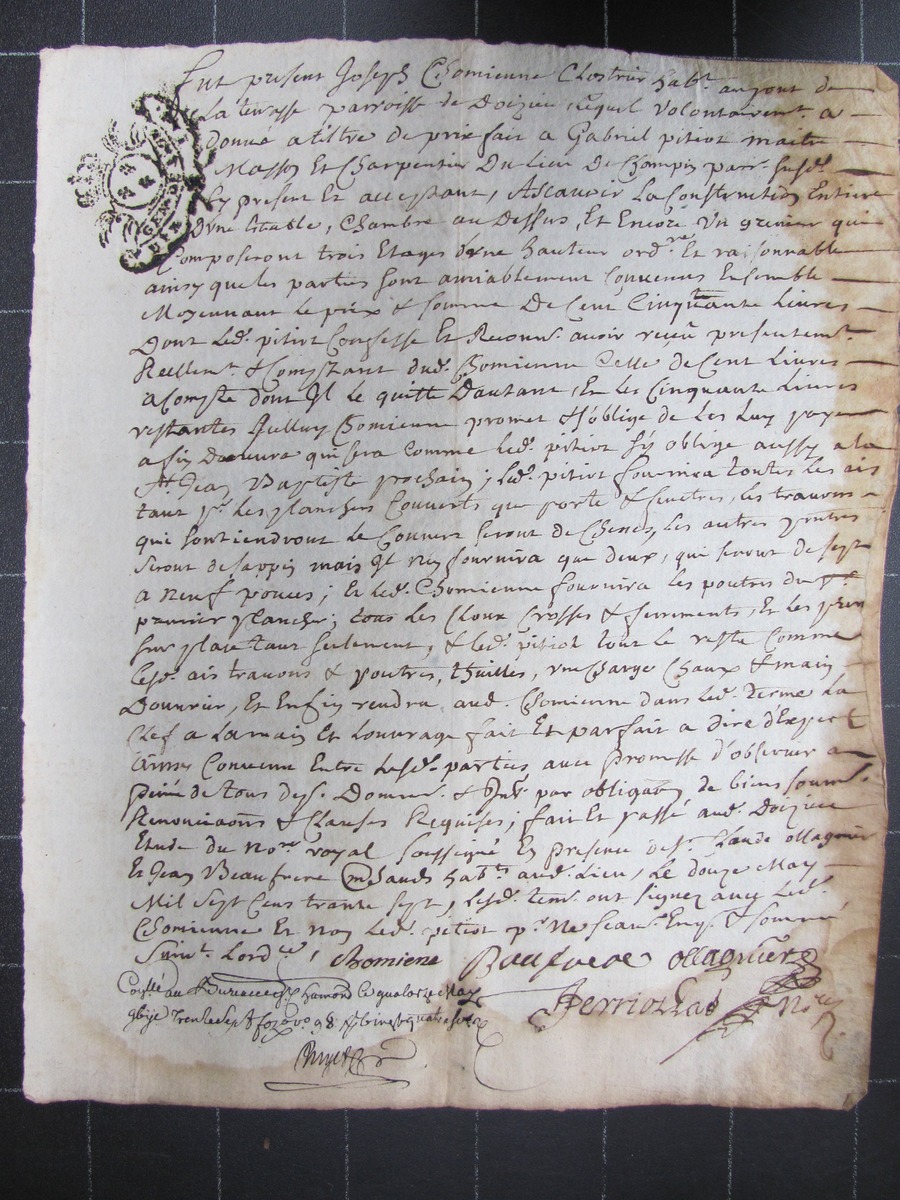 Fut present Joseph Chomienne Clostrier hab.t au pont de
La terrasse parroisse de Doizieu, lequel volontairem.t a
Donné a tiltre de prix fait a Gabriel pitiot maitre
Masson Et Charpentier Du Lieu De Champin parr. susd.
Cy present Et acceptant, Ascavoir La Construction Entiere
D'Une Estable, Chambre au Dessus, Et Encore Un grenier qui
Composeront trois Etages d'une hauteur ord.re Et raisonnable
ainsy que les parties sont amiablement Convenus Ensemble
Moyennant le prix & somme De Cent Cinquante Livres
Dont Led. pitiot Confesse Et Reconn. avoir receu presentem.t
Reellem.t & Comptant dud. Chomienne Celle de Cent Livres
a Compte dont Il le quitte D'autant, Et les Cinquante Livres
restantes Chomienne promet & s'oblige de Les Luy payer
a fin D'oeuvre qui sera Comme led. pitiot s'y oblige aussy a la
St. Jean Baptiste prochain; led. pitiot fournira toutes Les ais
tant p.r les planchers Couverts que porte & fenetres, les travons
qui soutiendront le Couvert seront de Chene, les autres poutres
seront de sappin mais Il n'en fournira que deux, qui seront de sept
a neuf pouces; Et led. Chomienne fournira les poutres du
premier plancher; tous les Cloux Crosses & ferrements, Et les
sur place tant seulement, & led. pitiot tout le reste Comme
lesd. ais travons & poutres, thuilles, Chaux & main
D'ouvrier, Et Enfin rendra aud. Chomienne dans led. terme La
Clef a La main Et L'ouvrage fait Et parfait a dire d'Expert
Ainsy Convenu Entre Lesd. parties avec Promesse d'observer a
peine de tous desp. Domm. & Int. par obligaon de biens soum.
Renonciaons & Clauses Requises; fait Et passé aud. Doizieu
Etude du No.re royal soussigné En presence de s. Claude ollagnier
Et Jean Beaufrere marchands hab.ts aud. Lieu, Le douze May
Mil Sept Cens trante sept, Lesd. tem. ont signez avec Led.
Chomienne Et non Led. pitiot p.r Ne scav. Enq. & sommé
Suiv.t Lord.ce, Chomiene Baufrere ollagnier
Con.lé au Bureau de S.t Chamond le quatorze May
gbije Trente sept fo 20 vo 98 R. vingt quatre sols
Perriollas No.re